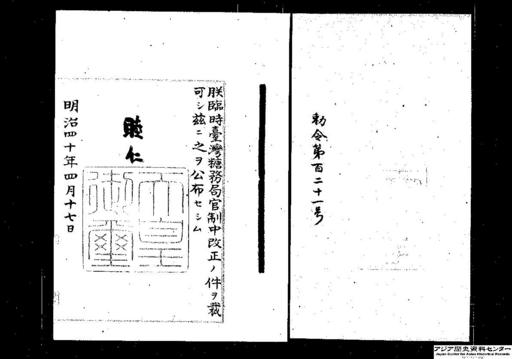 勅令第百二十一号
朕臨時臺灣糖務局官制中改正ノ件ヲ裁
可シ茲ニ之ヲ公布セシム
睦仁
天皇御璽
明治四十年四月十七日
アジア歴史資料センター
Japan Center for Asian Historical Records